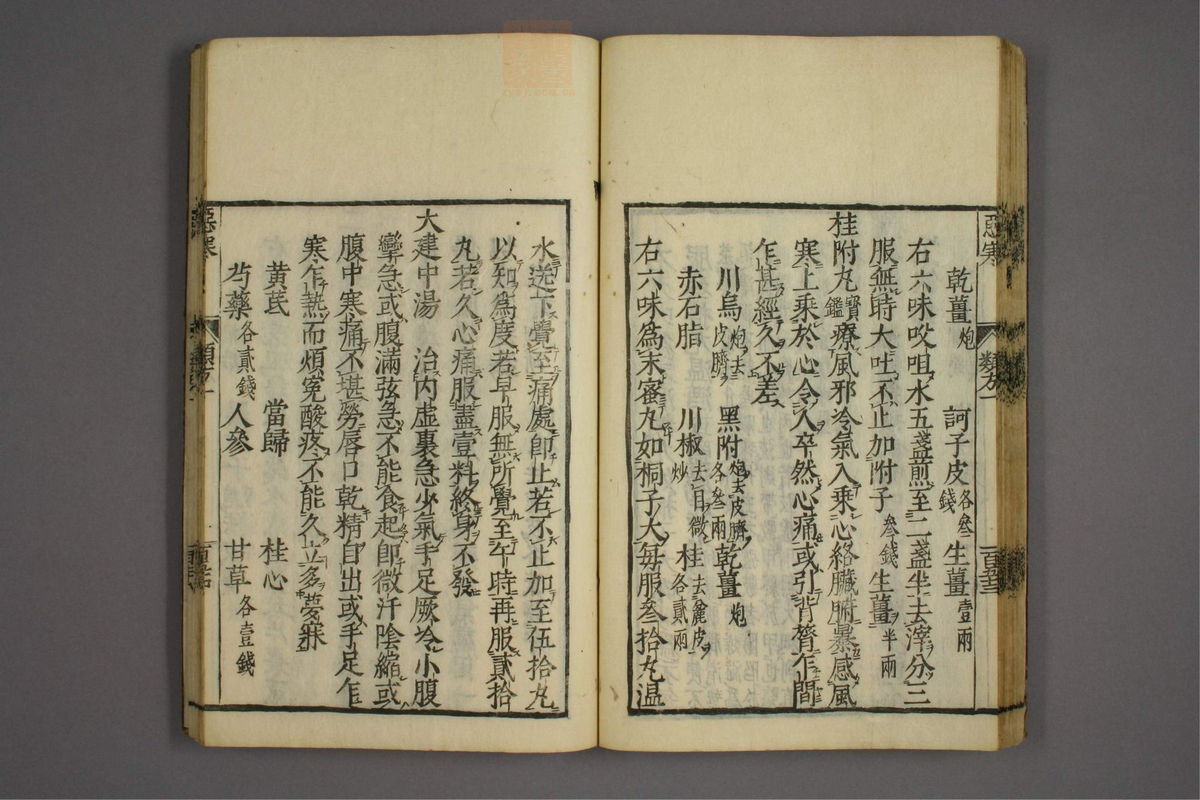 惡寒
類方
乾薑炮 訶子皮各叁錢 生薑壹兩
右六味㕮咀水五盞煎至二盞半去滓分三
服無時大吐不止加附子叁錢生薑半兩
桂附丸寶鑑療風邪冷氣入乘心絡臟腑暴感風
寒上乘於心令人卒然心痛或引背膂乍間
乍甚經久不差
川烏炮去皮臍 黑附炮去皮臍各叁兩 乾薑炮
赤石脂 川椒去目微炒 桂去麤皮各貳兩
右六味為末蜜丸如桐子大每服叁拾丸溫
水送下覺至痛處即止若不止加至伍拾丸
以知為度若早服無所覺至午時再服貳拾
丸若久心痛服盡壹料終身不發
大建中湯 治內虛裏急少氣手足厥冷小腹
攣急或腹滿弦急不能食起即微汗陰縮或
腹中寒痛不堪勞唇口乾精自出或手足乍
寒乍熱而煩寃酸疼不能久立多夢寐
黃芪 當歸 桂心
芍藥各貳錢 人參 甘草各壹錢
惡寒
類方